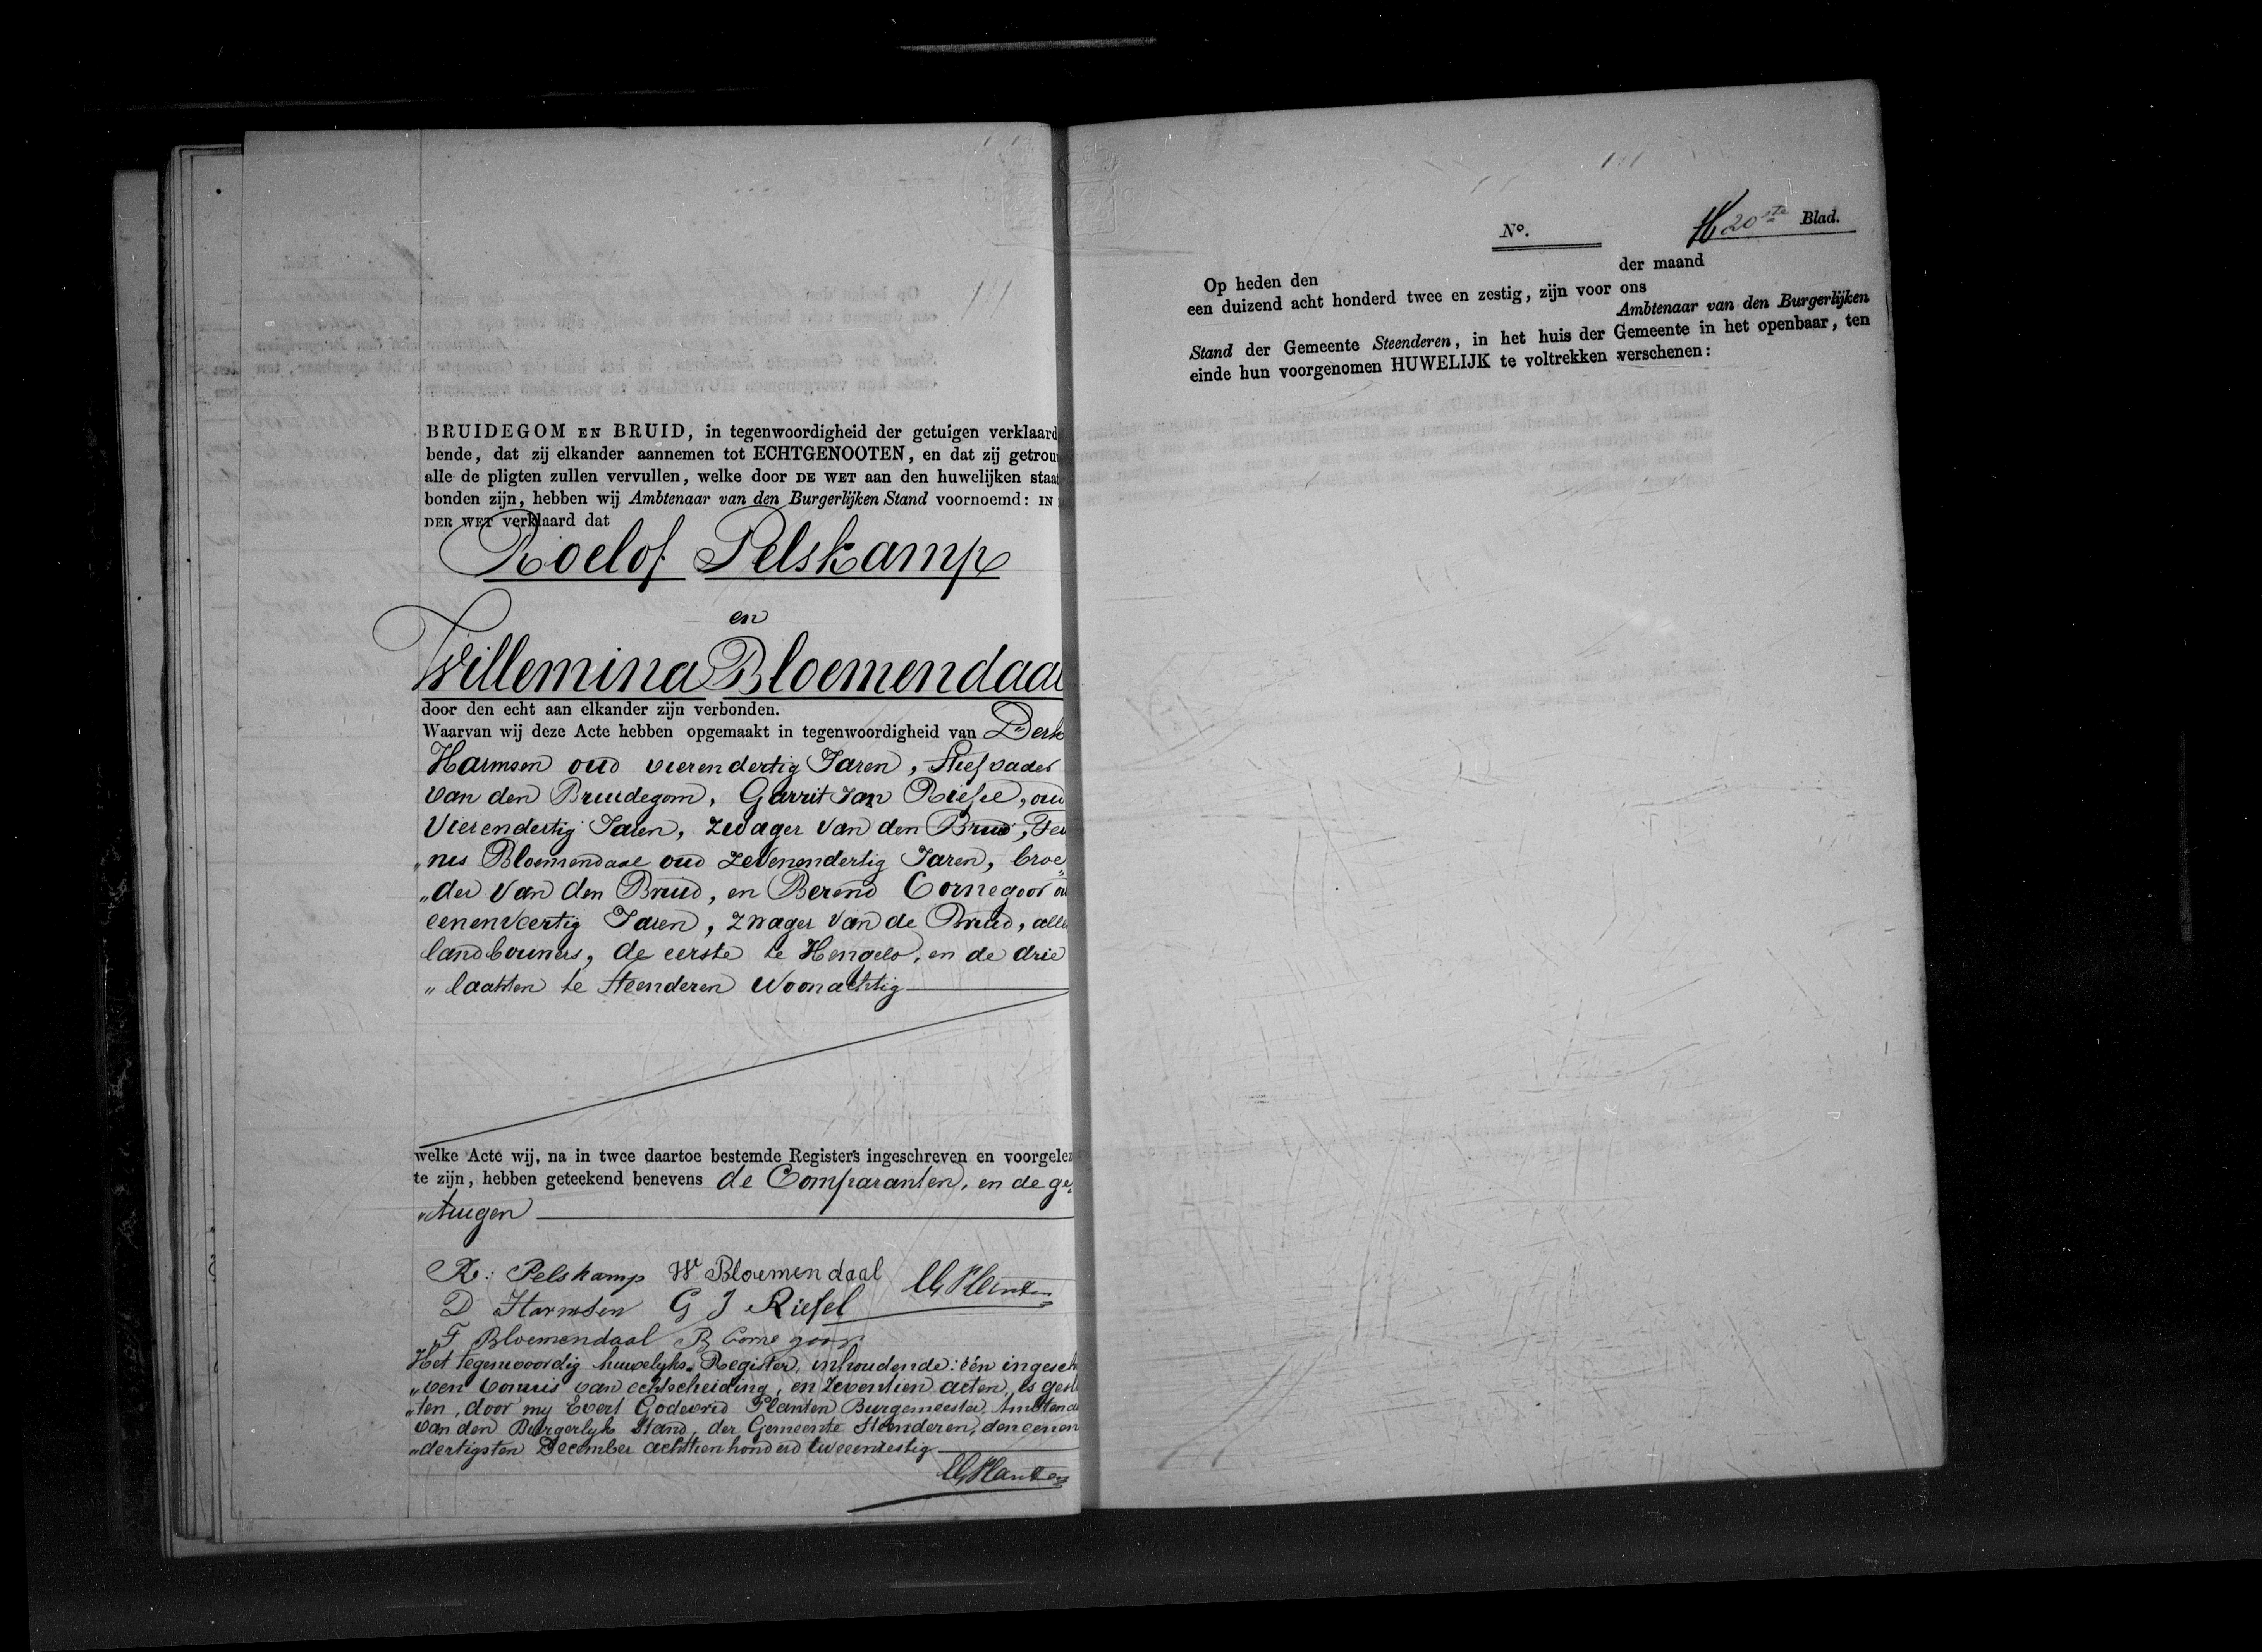 BRUIDEGOM EN BRUID, in tegenwoordigheid der getuigen verklaard
bende, dat zij elkander aannemen tot ECHTGENOOTEN, en dat zij getrou
alle de pligten zullen vervullen, welke door DE WET aan den huwelijken staa
bonden zijn, hebben wij Ambtenaar van den Burgerlijken Stand voornoemd: IN
DER WET verklaard dat
Roelof Pelskamp
en
Willemina Bloemendaal
door den echt aan elkander zijn verbonden.
Waarvan wij deze Acte hebben opgemaakt in tegenwoordigheid van Derk
Harmsen oud vierendertig Jaren, Stiefvader
van den Bruidegom, Garrit Jan Riefel, oud
Vierendertig Jaren, zwager van den Bruid,
„nus Bloemendaal oud zevenendertig Jaren, broe„
„der van den Bruid, en Berend Cornegoor
eenenveertig Jaren, zwager van de Bruid, alle
landbouwers, de eerste te Hengelo, en de drie
„laatsten te Steenderen Woonachtig
welke Acte wij, na in twee daartoe bestemde Registers ingeschreven en voorgelez
te zijn, hebben geteekend benevens de Comparanten, en de ge„
„tuigen
R: Pelskamp W Bloemendaal EG Planten
D Harmsen G J Riefel
F Bloemendaal B Cornegoor
Het tegenwoordig huwelyks-Register, inhoudende: één ingesch
„ven vonnis van echtscheiding, en zeventien acten, is gesl
„ten, door my Evert Godevrid Planten Burgemeester, Ambtena
van den Burgerlyk Stand, der Gemeente Steenderen, den eenen
„dertigsten December achttienhonderd tweeenzestig
EG Planten
No. 20ste Blad.
Op heden den der maand
een duizend acht honderd twee en zestig, zijn voor ons
Ambtenaar van den Burgerlijken
Stand der Gemeente Steenderen, in het huis der Gemeente in het openbaar, ten
einde hun voorgenomen HUWELIJK te voltrekken verschenen: